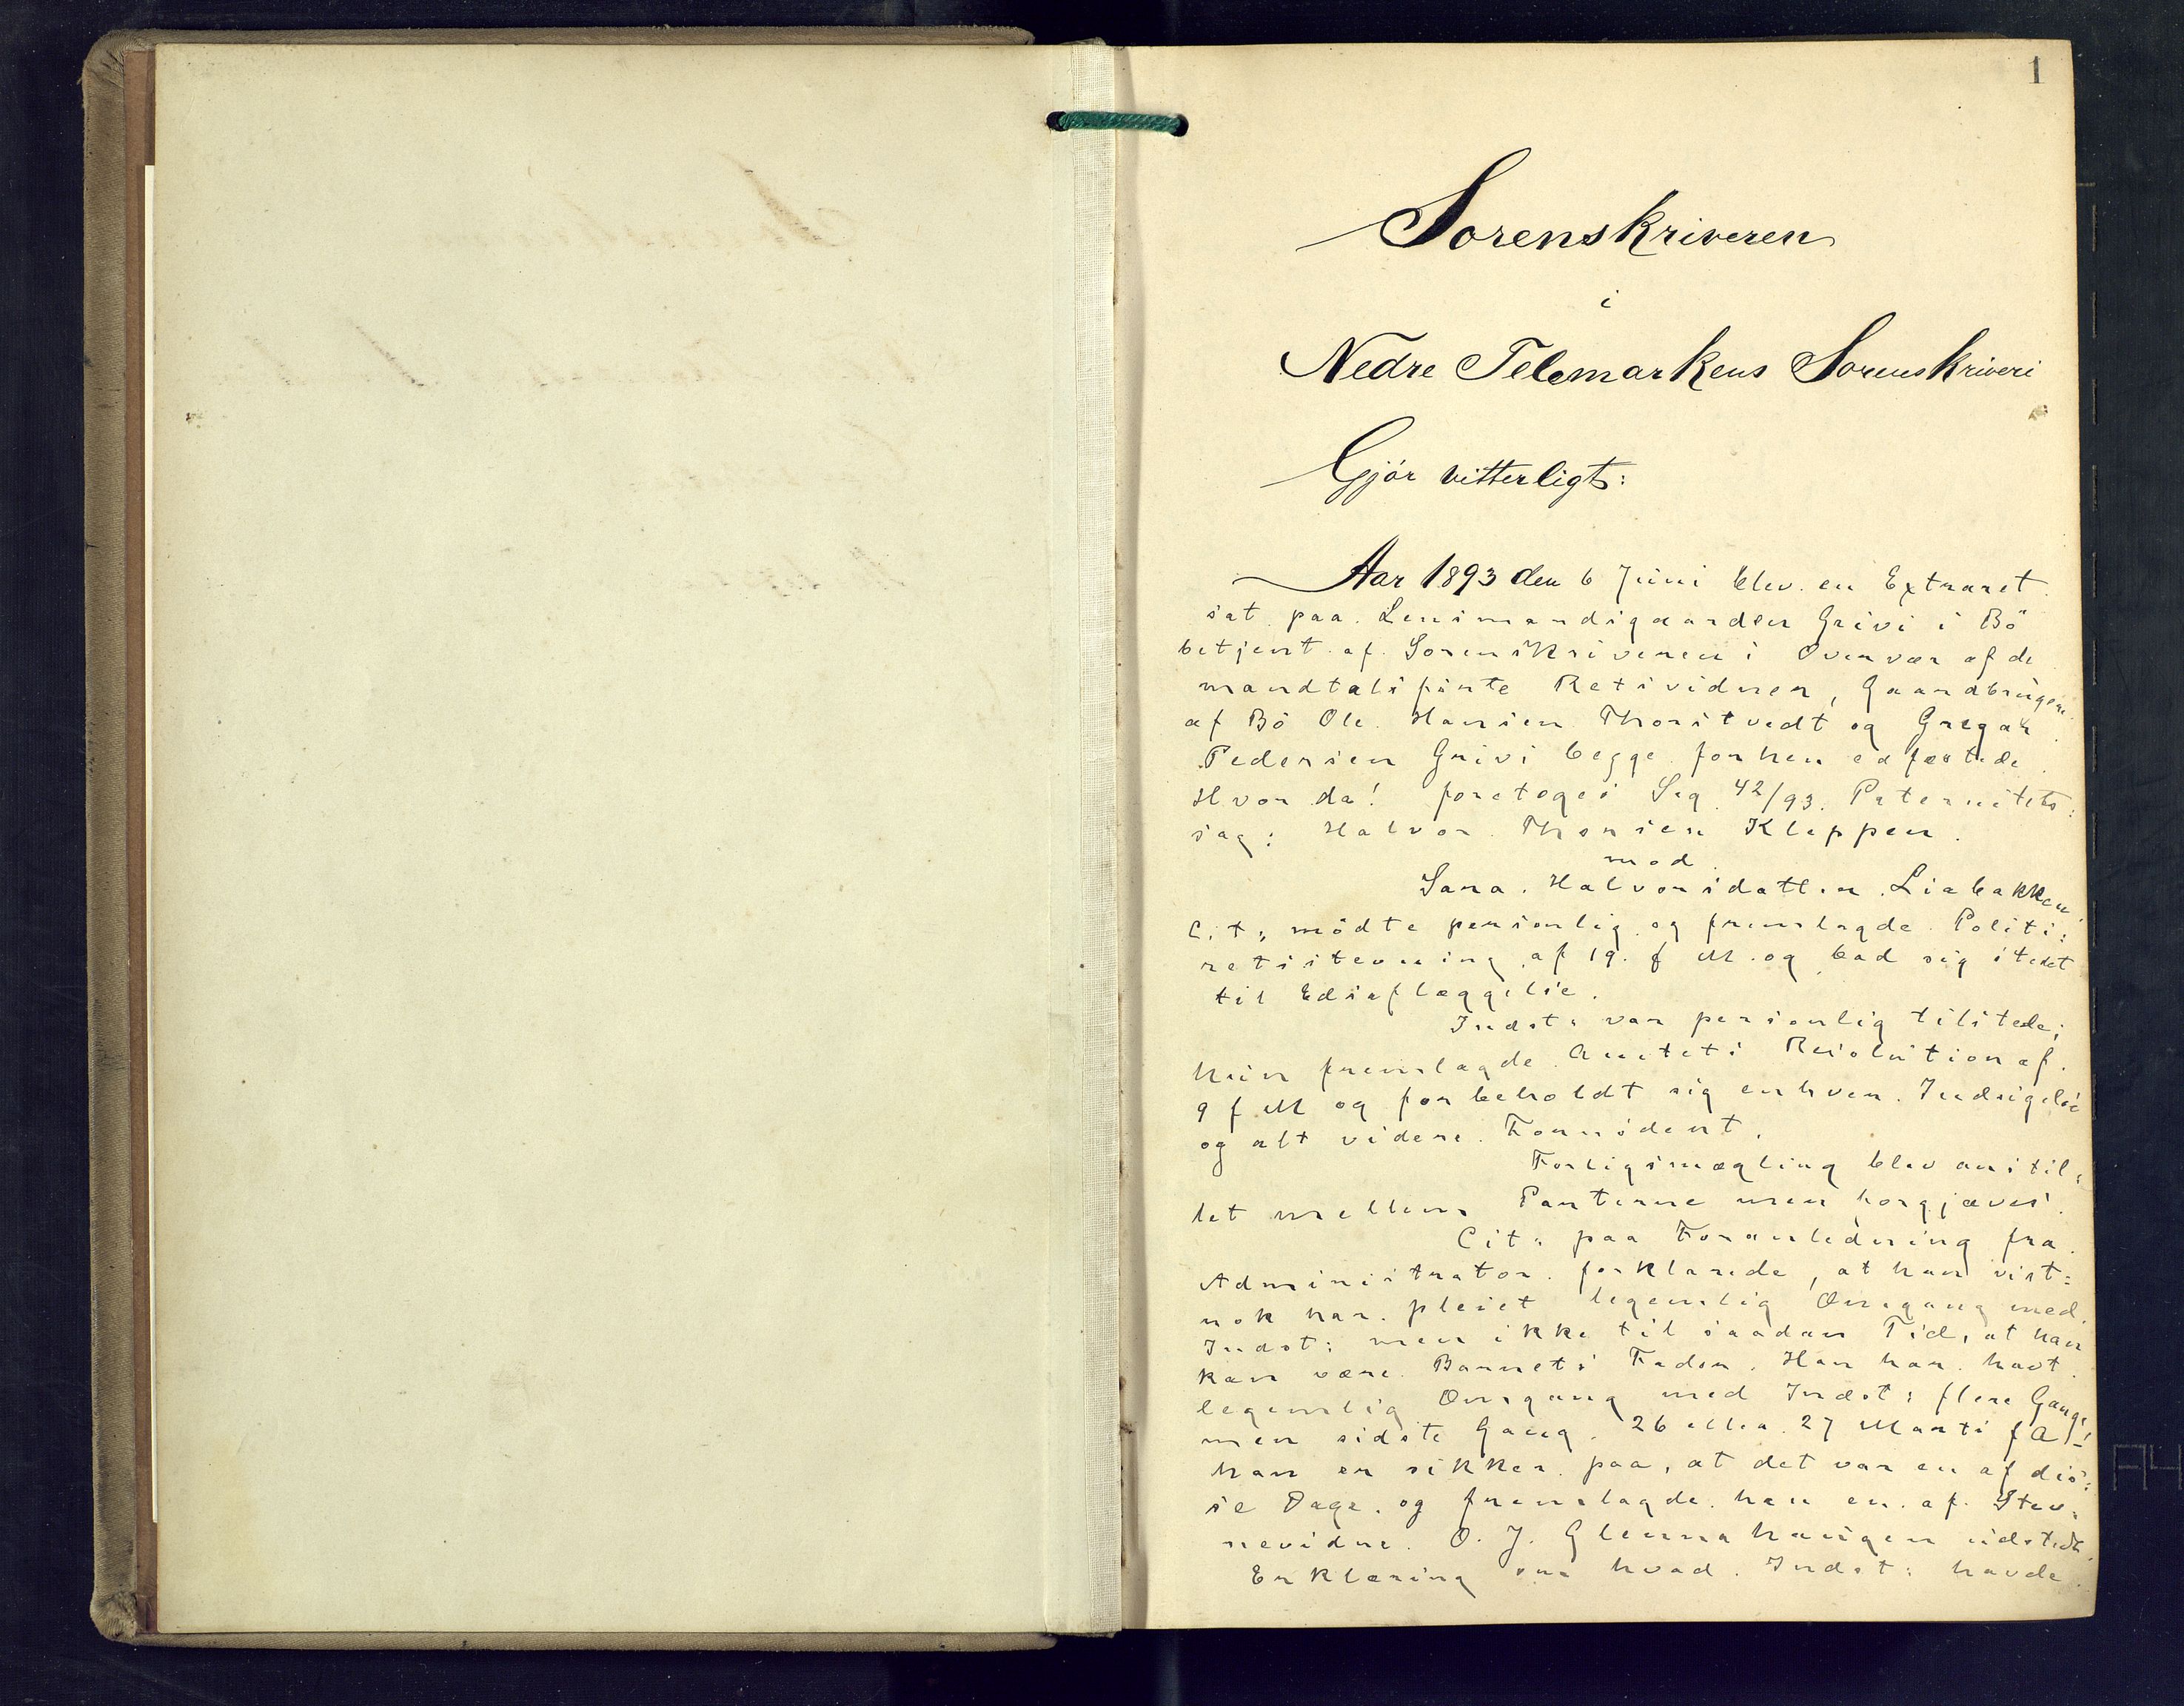 1
Sorenskriveren
i
Nedre Telemarkens Sorenskriveri
Gjör vitterligt:
Aar 1893 den 6 Juni blev en Extraret
sat paa Lensmandsgaarden Grivi i Bö
betjent af Sorenskriveren i Overvær af de
mandtalsförte Retsvidner, Gaardbrugere
af Bö Ole Hansen Thorstvedt og Gregar
Pedersen Grivi begge forhen edfæstede
Hvor da! foretoges Sag 42/93. Paternitets:
sag: Halvor Thorsen Kleppen
mod
Sara Halvorsdatter Liabakken
C.t: mödte personlig og fremlagde Politi:
retsstevning af 19. f M. og bad sig stedet
til Edsaflæggelse.
Indst: var personlig tilstede;
hun fremlagde Amtets Resolution af
9 f M og forbeholdt sig enhver Indsigelse
og alt videre Fornödent.
Forligsmægling blev anstil:
let mellem Parterne men forgjæves.
Cit: paa Foranledning fra
Administrator forklarede, at han vist:
nok har pleiet legemlig Omgang med
Indst: men ikke til saadan Tid, at han
kan være Barnets Fader. Han har havt
legemlig Omgang med Indst: flere Gange
men sidste Gang 26 eller 27 Marts f A!
han er sikker paa, at det var en af dis:
se Dage og fremlagde han en af Stev:
nevidne O. J. Glennahaugen udstedt
Erklæring om hvad Indst: havde